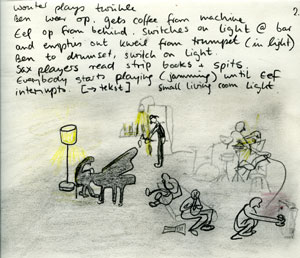 wouter plays twinkle
Ben weer op, gets coffee from machine
Eef op from behind. Switches on light @ bar
and empties out kweil from trumpet (in light)
Ben to drumset, switch on light
Sax players read strip books + spits.
Everybody starts playing (jamming) until Eef
interrupts. [→ tekst] small living room light
2.